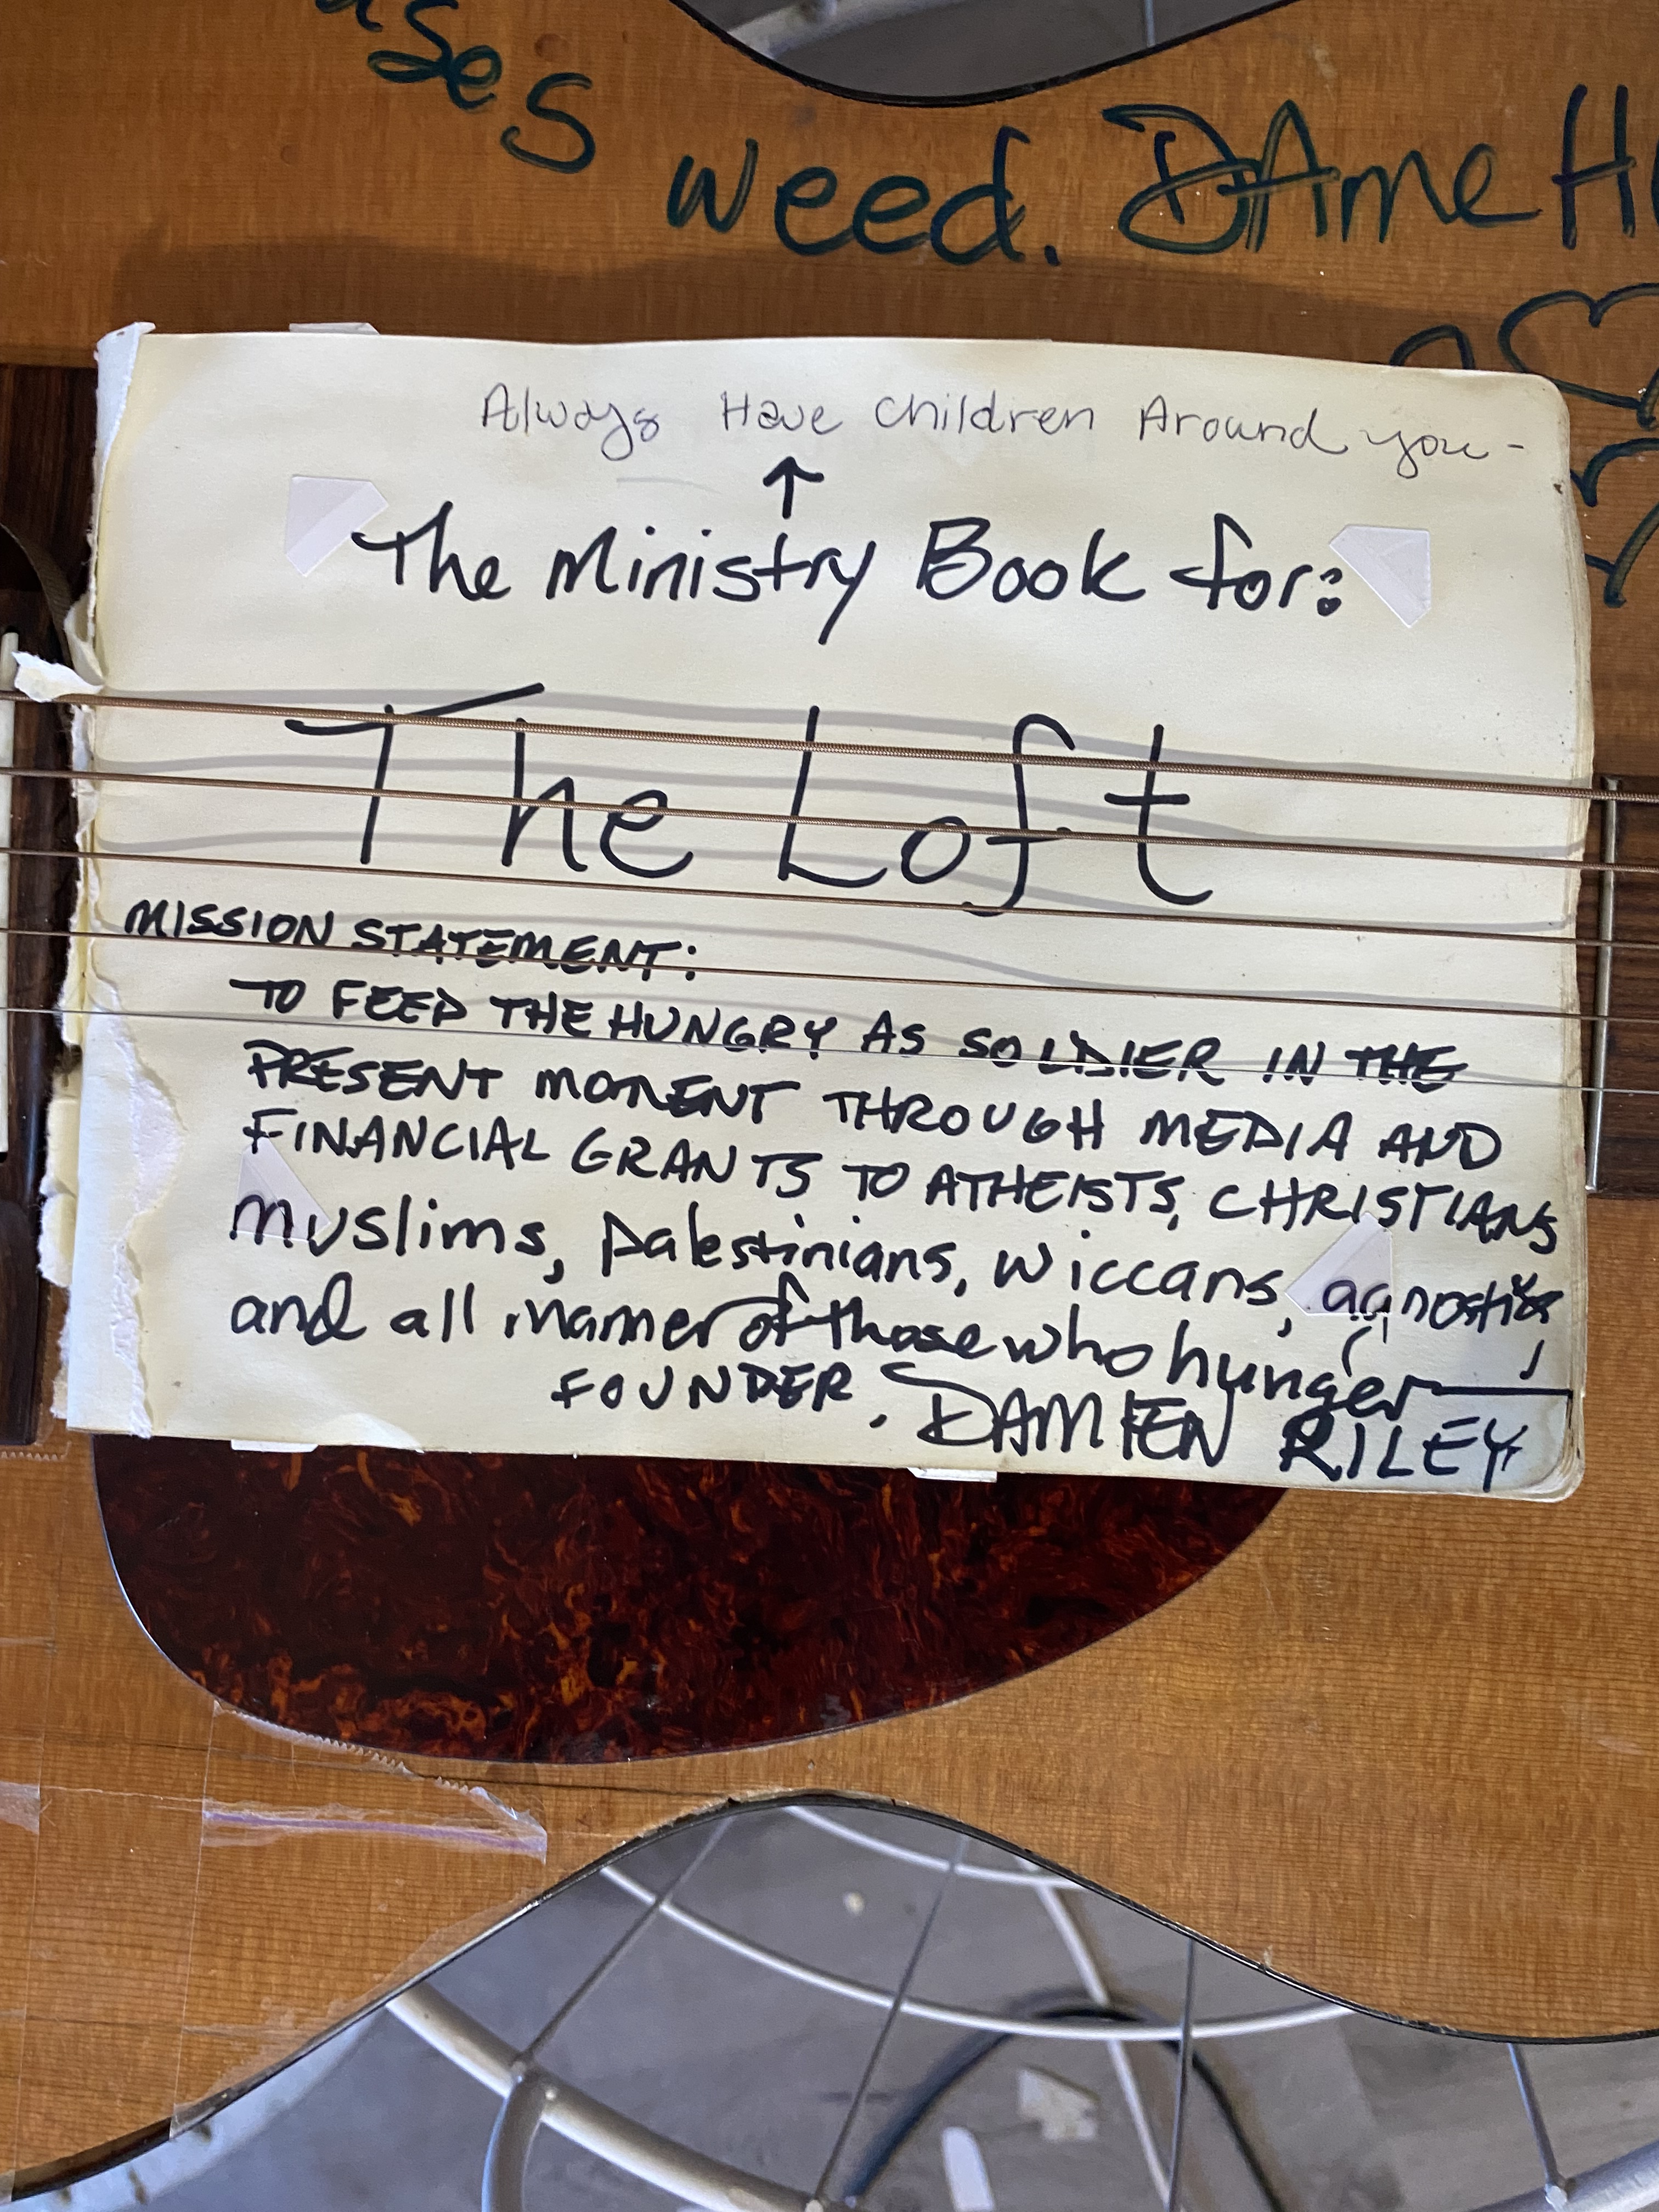 ases
weed. DAmeH
Always Have children Around you -
↑
The Ministry Book for:
The Loft
MISSION STATEMENT:
TO FEED THE HUNGRY AS SOLDIER IN THE
PRESENT MOMENT THROUGH MEDIA AND
FINANCIAL GRANTS TO ATHEISTS, CHRISTIANS
Muslims, palestinians, wiccans, agnostics
and all manner of those who hunger
FOUNDER. DAMIEN RILEY